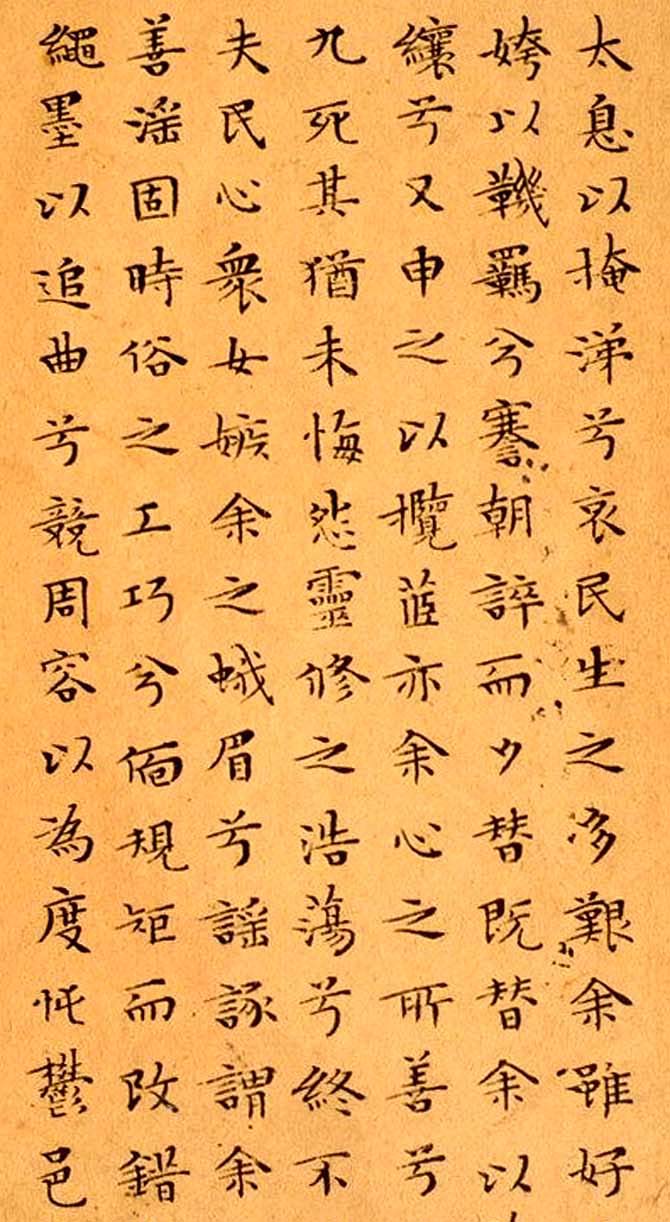 太息以掩涕兮哀民生之多艱余雖好
姱以鞿羈兮謇朝誶而夕替既替余以
纕兮又申之以攬茝亦余心之所善兮
九死其猶未悔怨靈修之浩蕩兮終不
夫民心衆女嫉余之蛾眉兮謡諑謂余
善滛固時俗之工巧兮偭規矩而改錯
繩墨以追曲兮競周容以為度忳鬱邑